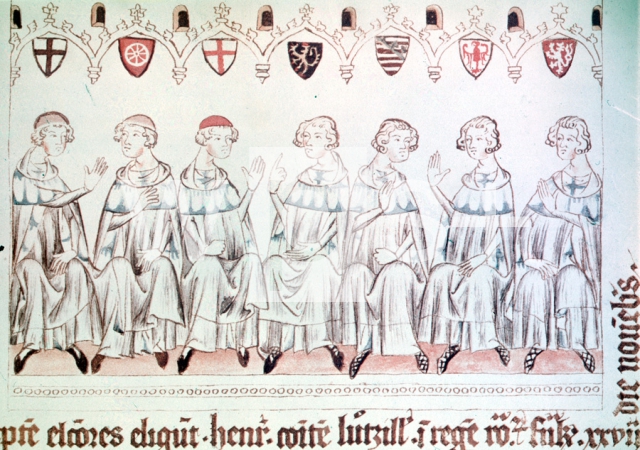 pte elcores eligut · henr · coite lutzill · i rege ro · fnk · xxvii
die nouebs.